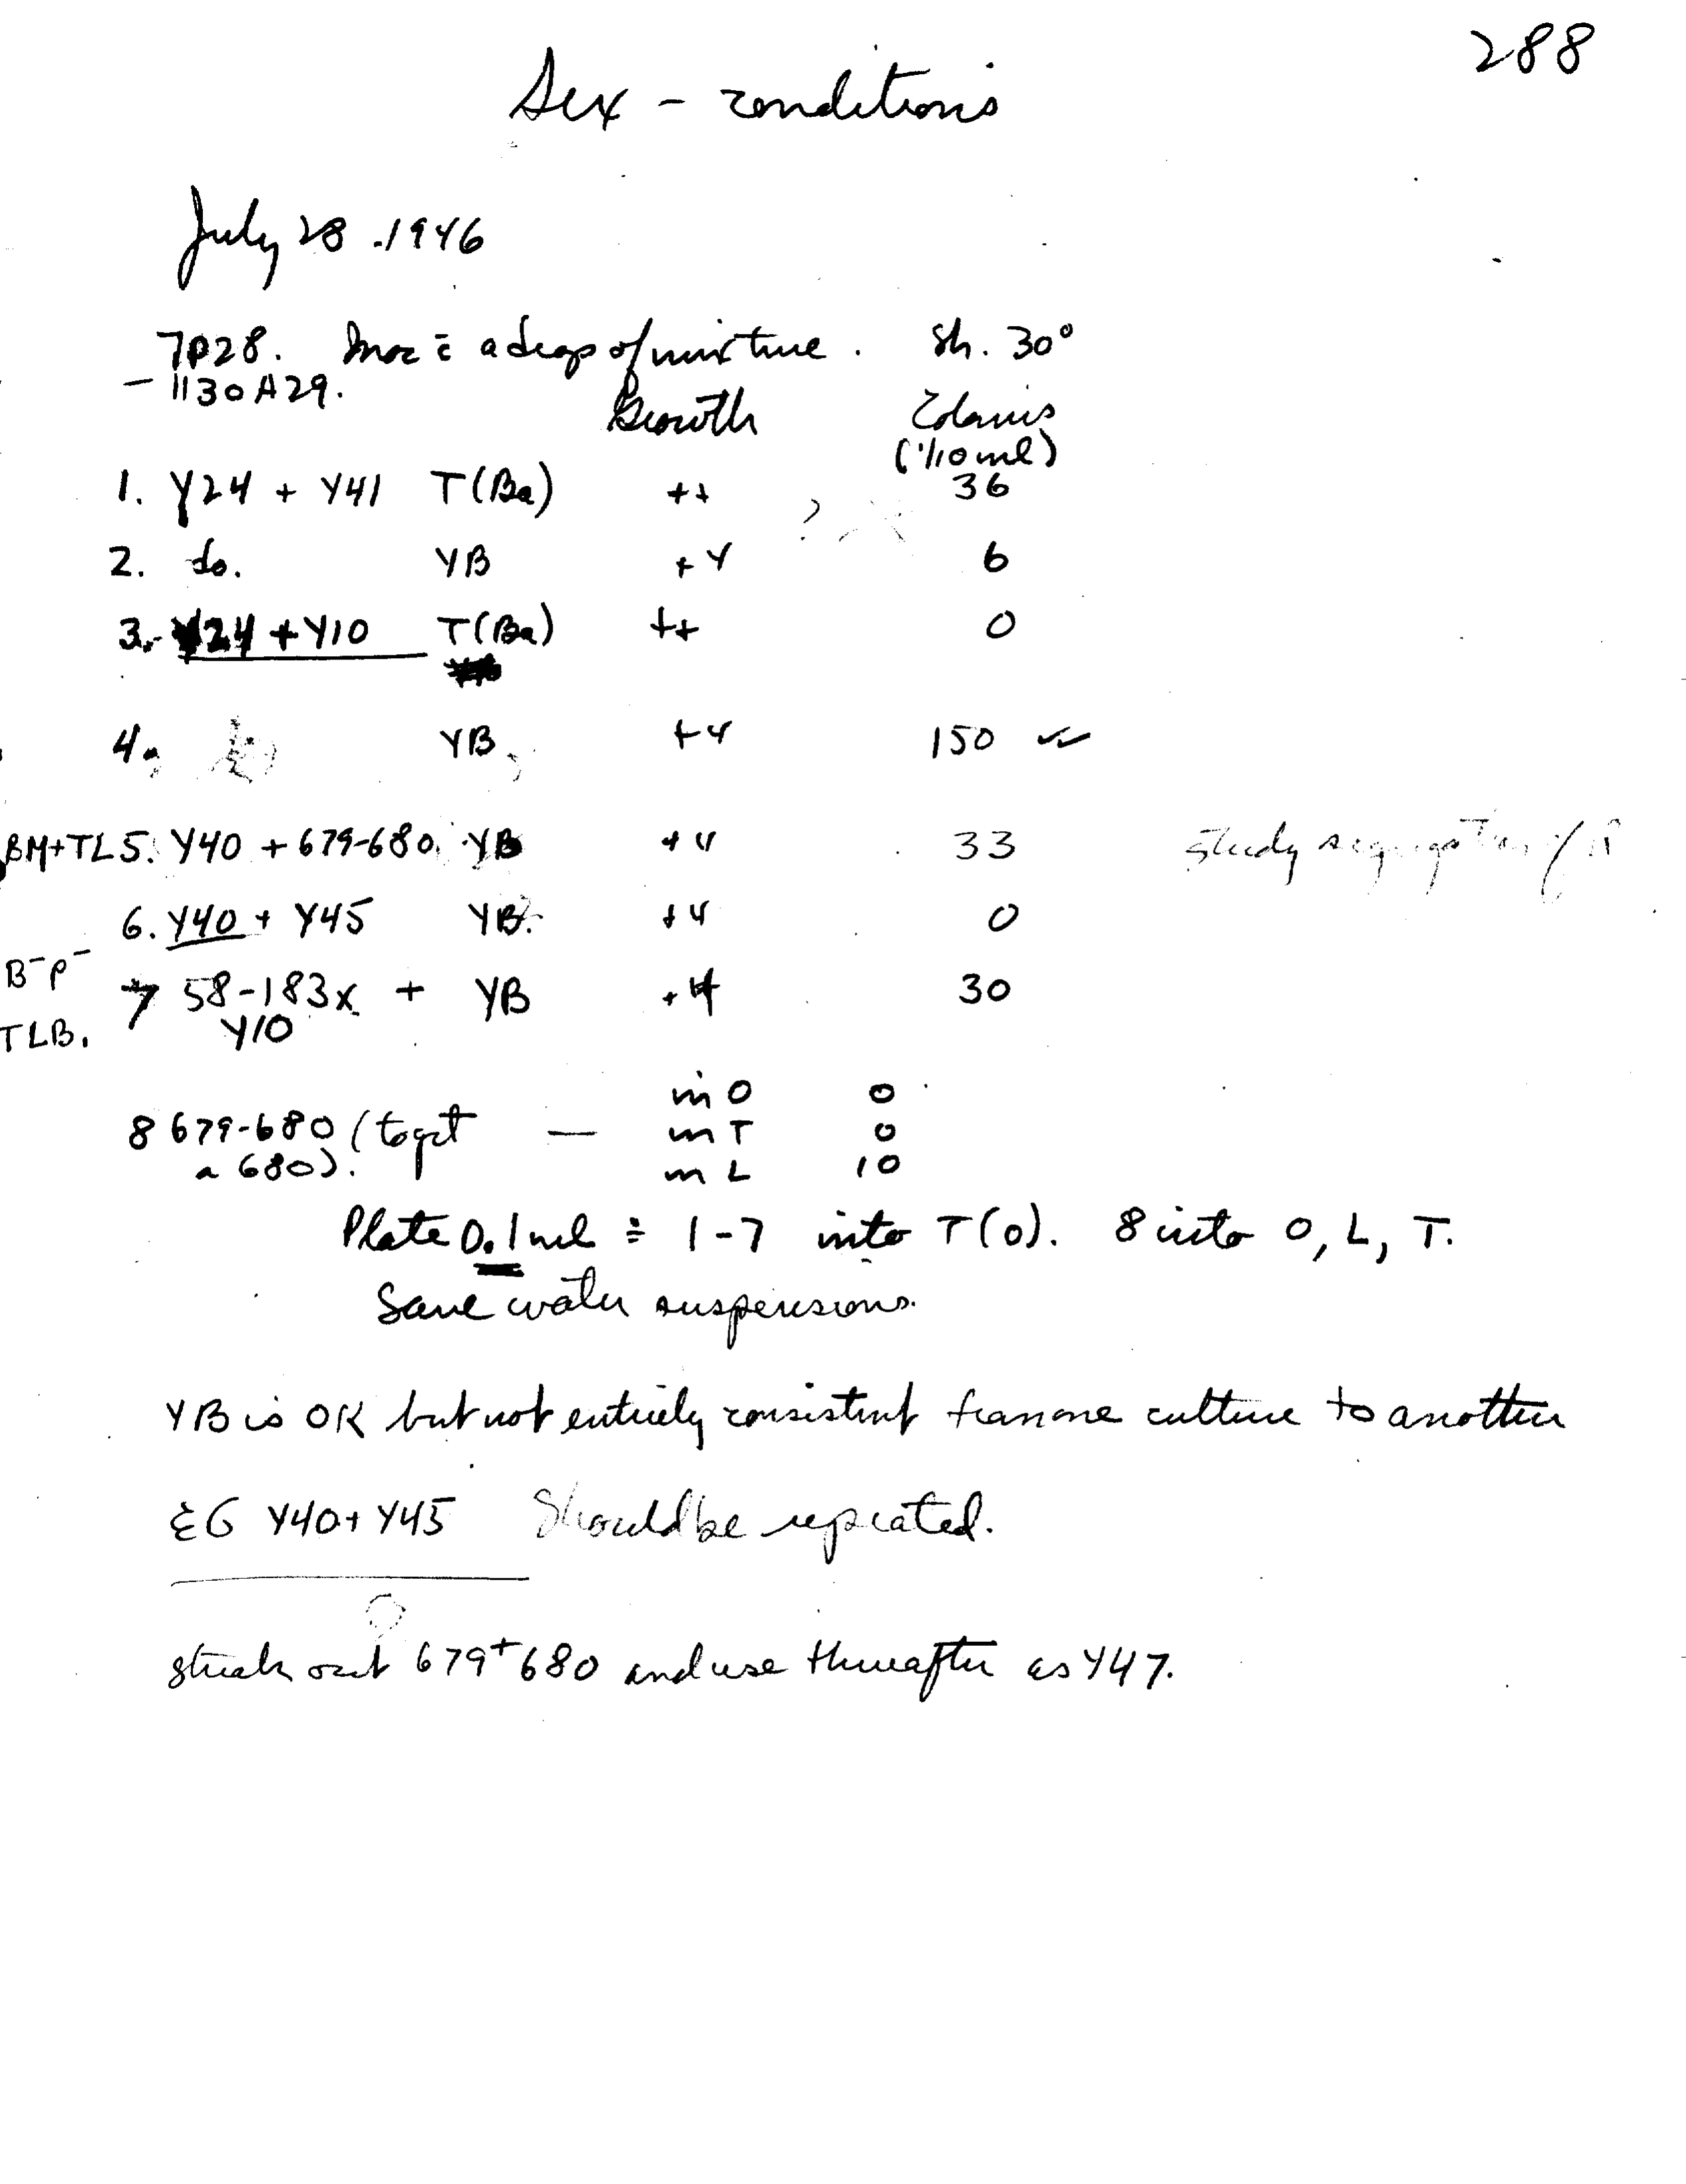 288
Sex - conditions
July 28. 1946
7P28. Inoc c̄ a drop of mixture. Sh. 30°
- 1130A29.
Growth Colonies
(1/10 ml)
1. Y24 + Y41 T(Ba) ++ 36
2. do. YB ++ 6
3. Y24 + Y10 T(Ba) ++ 0
4. YB ++ 150 ✓
BM+TL 5. Y40 + 679-680 YB ++ 33 study segregation
6. Y40 + Y45 YB. ++ 0
B⁻P⁻ 7 58-183x + YB ++ 30
TLB. Y10
in O 0
8 679-680 (to get — in T 0
a 680). in L 10
Plate 0.1 ml 1-7 into T(0). 8 into O, L, T.
Save water suspensions.
YB is OK but not entirely consistent from one culture to another
EG Y40+ Y45 Should be repeated.
streak out 679+680 and use thereafter as Y47.